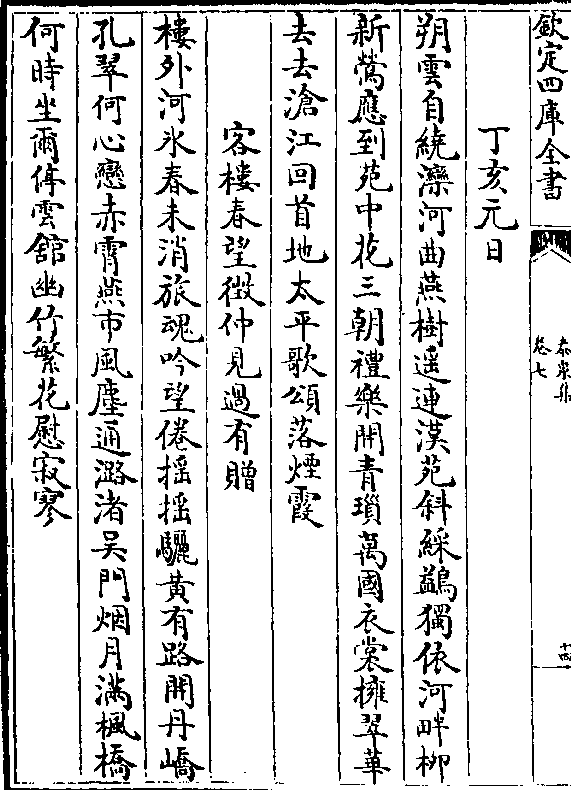 欽定四庫全書
泰泉集
卷七
十四
丁亥元日
朔雲自繞灤河曲燕樹遥連漢苑斜綵鷁獨依河畔柳
新鶯應到苑中花三朝禮樂開青瑣萬國衣裳擁翠華
去去滄江回首地太平歌頌落煙霞
客樓春望徴仲見過有贈
樓外河氷春未消旅魂吟望倦摇摇驪黄有路開丹嶠
孔翠何心戀赤霄燕市風塵通潞渚吴門烟月滿楓橋
何時坐爾停雲舘幽竹繁花慰寂寥